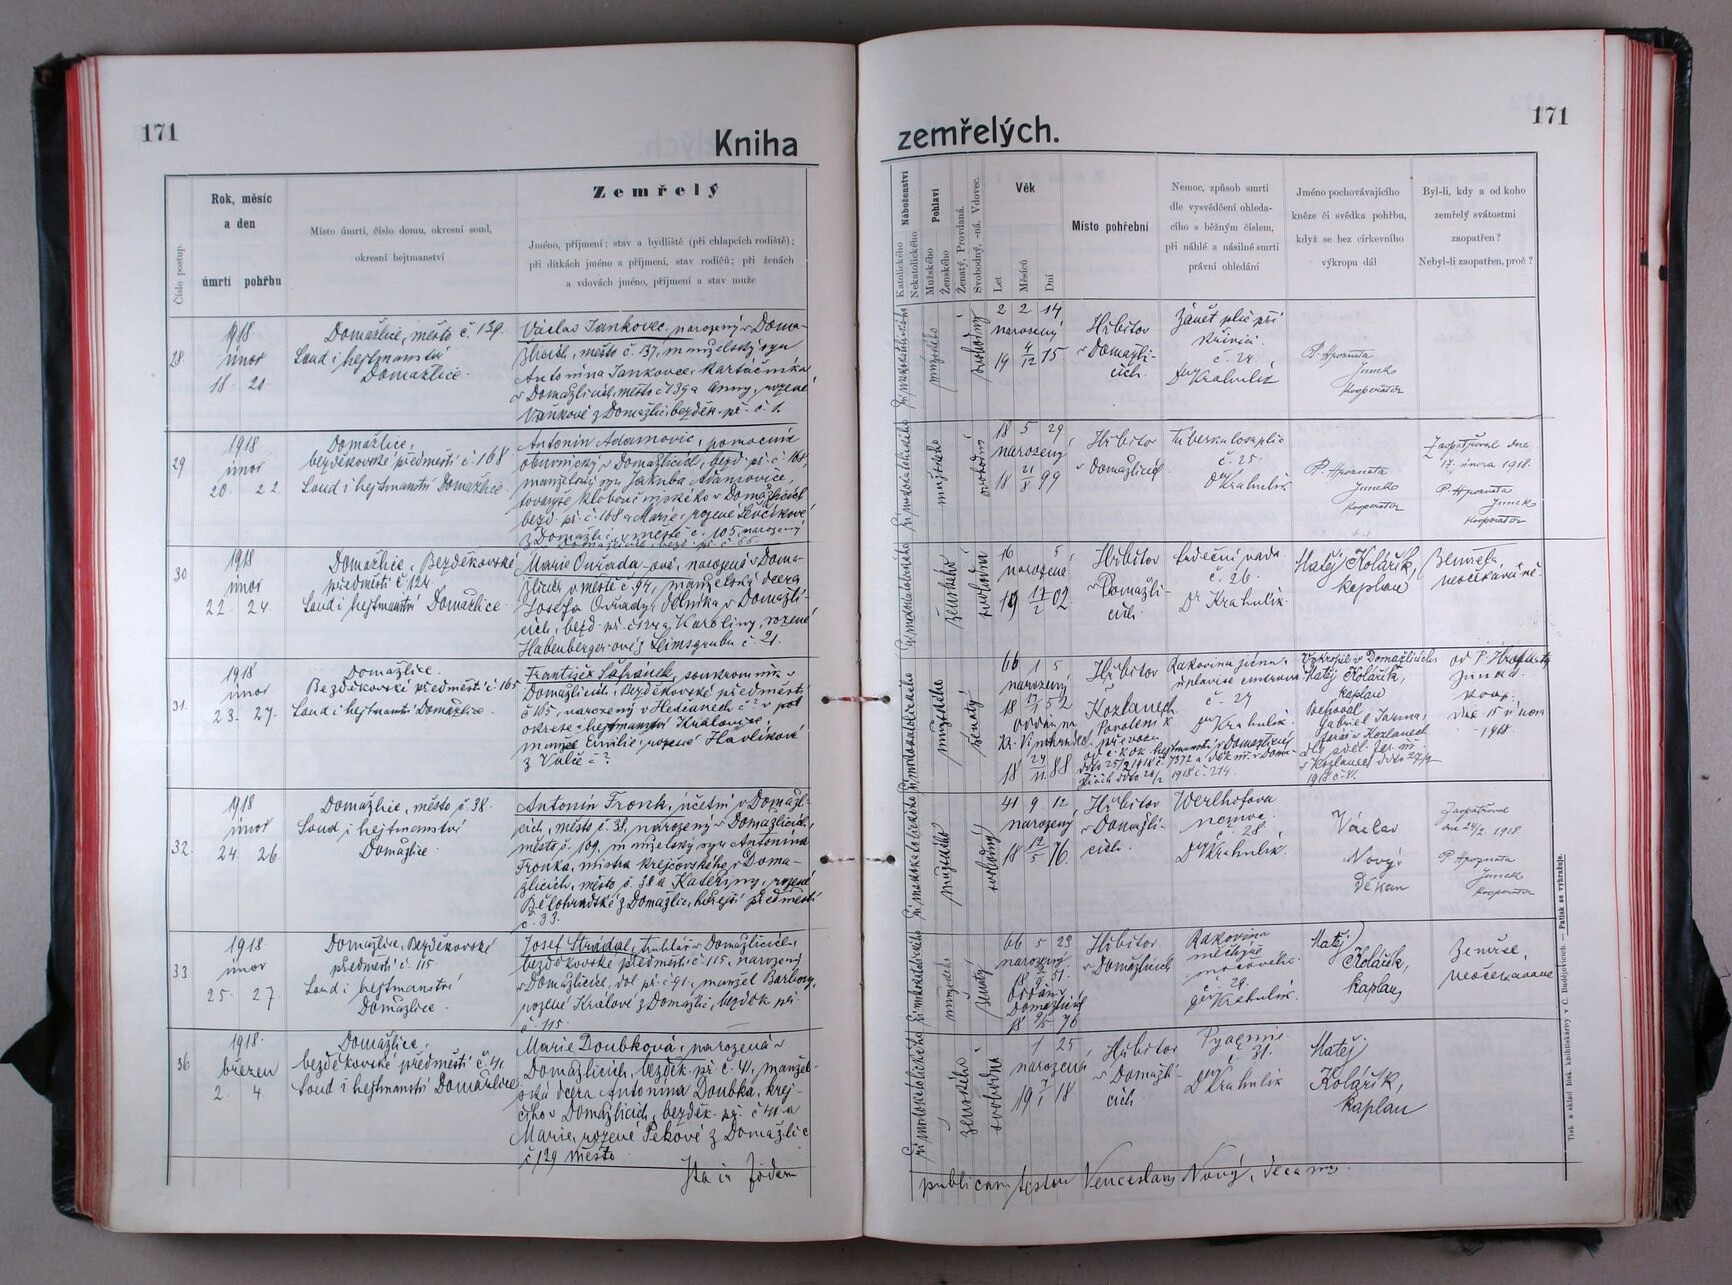 171
Kniha
Rok, měsíc
a den
úmrtí pohřbu
Číslo postup.
Místo úmrtí, číslo domu, okresní soud,
okresní hejtmanství
Zemřelý
Jméno, příjmení; stav a bydliště (při chlapcích rodiště);
při dítkách jméno a příjmení, stav rodičů; při ženách
a vdovách jméno, příjmení a stav muže
28.
1918
únor
18. 20.
Domažlice, město č. 139.
Soud i hejtmanství
Domažlice.
Václav Jankovec, narozený v Doma-
žlicích, město č. 137, manželský syn
Antonína Jankovce, kartáčníka
v Domažlicích, město č 139 a Anny, rozené
Vaňkové z Domažlic, bezděk. př. č. 1.
29
1918
únor
20. 22.
Domažlice,
bezděkovské předměstí č. 168
Soud i hejtmanství Domažlice
Antonín Adamovic, pomocník
obuvnický v Domažlicích, bezd. př. č. 168,
manželský syn Jakuba Adamovice,
tovaryše kloboučnického v Domažlicích
bezd. př. č. 168 a Marie, rozené Ševčíkové
z Domažlic, město č. 105, narozený
v Domažlicích, bezd. př. č.
30
1918
únor
22. 24.
Domažlice, Bezděkovské
předměstí č. 124.
Soud i hejtmanství Domažlice.
Marie Ouřada-ová, narozená v Doma-
žlicích v městě č. 94, manželská dcera
Josefa Ouřady, rolníka v Domažli-
cích, bezd. př. č. 124 a Karoliny, rozené
Habenberger-ové z č. 21.
31.
1918
únor
23. 27.
Domažlice.
Bezděkovské předměstí č. 165
Soud i hejtmanství Domažlice.
František Šafránek, soukromník v
Domažlicích, Bezděkovské předměstí
č. 165, narozený v Hedčanech č. ? v pol.
okrese i hejtmanství Kralovice,
manžel Emilie, rozené Havlíkové
z Valče č. ?
32.
1918
únor
24. 26.
Domažlice, město č. 38.
Soud i hejtmanství
Domažlice.
Antonín Fronk, účetní v Domažli-
cích, město č. 38, narozený v Domažlicích,
město č. 109, manželský syn Antonína
Fronka, mistra krejčovského v Doma-
žlicích, město č. 38 a Kateřiny, rozené
Bělohradské z Domažlic, hořejší předměstí
č. 33.
33
1918
únor
25. 27.
Domažlice, Bezděkovské
předměstí č. 115
Soud i hejtmanství
Domažlice.
Josef Strádal, truhlář v Domažlicích,
bezděkovské předměstí č. 115, narozený
v Domažlicích, dol. př. č. 41, manžel Barbory,
rozené Králové z Domažlic, bezděk. př.
č. 115.
36
1918.
březen
2. 4
Domažlice,
bezděkovské předměstí č. 41
Soud i hejtmanství Domažlice
Marie Doubková, narozená v
Domažlicích, bezděk. př. č. 41, manžel-
ská dcera Antonína Doubka, krej-
čího v Domažlicích, bezděk. př. č. 41 a
Marie, rozené Pekové z Domažlic
č. 129 město.
Ita in fidem
171
zemřelých.
Katolického Nekatolického Náboženství
Mužského Ženského Pohlaví
Ženatý, Provdaná. Svobodný, -ná. Vdovec.
Věk
Let Měsíců Dní
Místo pohřební
Nemoc, způsob smrti
dle vysvědčení ohleda-
cího s běžným číslem,
při náhlé a násilné smrti
právní ohledání
Jméno pochovávajícího
kněze či svědka pohřbu,
když se bez církevního
výkropu dál
Byl-li, kdy a od koho
zemřelý svátostmi
zaopatřen?
Nebyl-li zaopatřen, proč?
mužského
svobodný
2 2 14
narozený
19 4/12 15
Hřbitov
v Domažli-
cích.
Zánět plic při
křivici
č. 24.
Dr Krahulík
P. Hroznata
Junek
kooperátor
mužského
svobodný
18 5 29
narozený
18 21/8 99
Hřbitov
v Domažlicích
Tuberkulosa plic
č. 25.
Dr Krahulík.
P. Hroznata
Junek
kooperátor
Zaopatřoval dne
17. února 1918.
P. Hroznata
Junek
kooperátor
ženského
svobodná
16 5
narozená
19 17/2 02
Hřbitov
v Domažli-
cích
Srdeční vada.
č. 26.
Dr Krahulík.
Matěj Kolářík,
kaplan
Zemřela
neočekávaně.
mužského
ženatý
66 1 5
narozený
18 52
oddán na
Kr. Vinohradech
18 24/11 88
Hřbitov
v
Kožlanech
Povolení k
převozu
Rakovina jícnu.
č. 27
Dr Krahulík.
Vykropil v Domažlicích
Matěj Kolářík,
kaplan
Pochoval
Gabriel
farář v Kožlanech
od P. Hroznaty
Junka
koop.
dne 15. února
1918.
mužského
svobodný
41 9 12
narozený
18 12/5 76.
Hřbitov
v Domažli-
cích.
Werlhofova
nemoc.
č. 28
Dr Krahulík.
Václav
Nový
děkan
Zaopatřoval
dne 24/2. 1918
P. Hroznata
Junek
kooperátor
mužského
ženatý
66 5 23
narozený
18 51.
Oddán v
Domažlicích
18 9/5 76
Hřbitov
v Domažlicích
Rakovina
měchýře
močového.
č. 29.
Dr Krahulík.
Matěj
Kolářík,
kaplan
Zemřel
neočekávaně
ženského
svobodná
1 25
narozená
19 7/1 18.
Hřbitov
v Domažli-
cích
Pyaemie.
č. 31.
Dr Krahulík
Matěj
Kolářík,
kaplan
publicam testor Venceslaus Nový, decanus.
Tisk a sklad lisk. knihtiskárny v Č. Budějovicích — Patisk se vyhražuje.